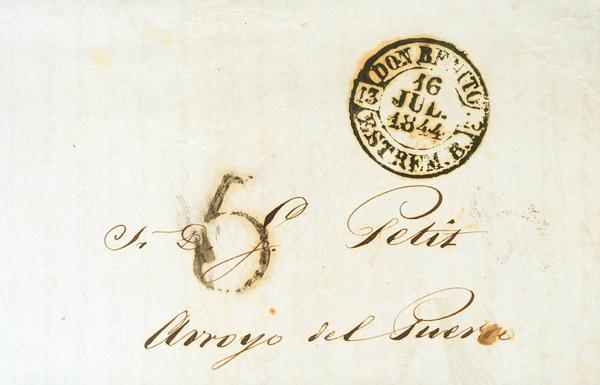 DON BENITO
16
JUL.
1844
13
ESTREM. B.
6
Sr. D. J. Petit
Arroyo del Puerco